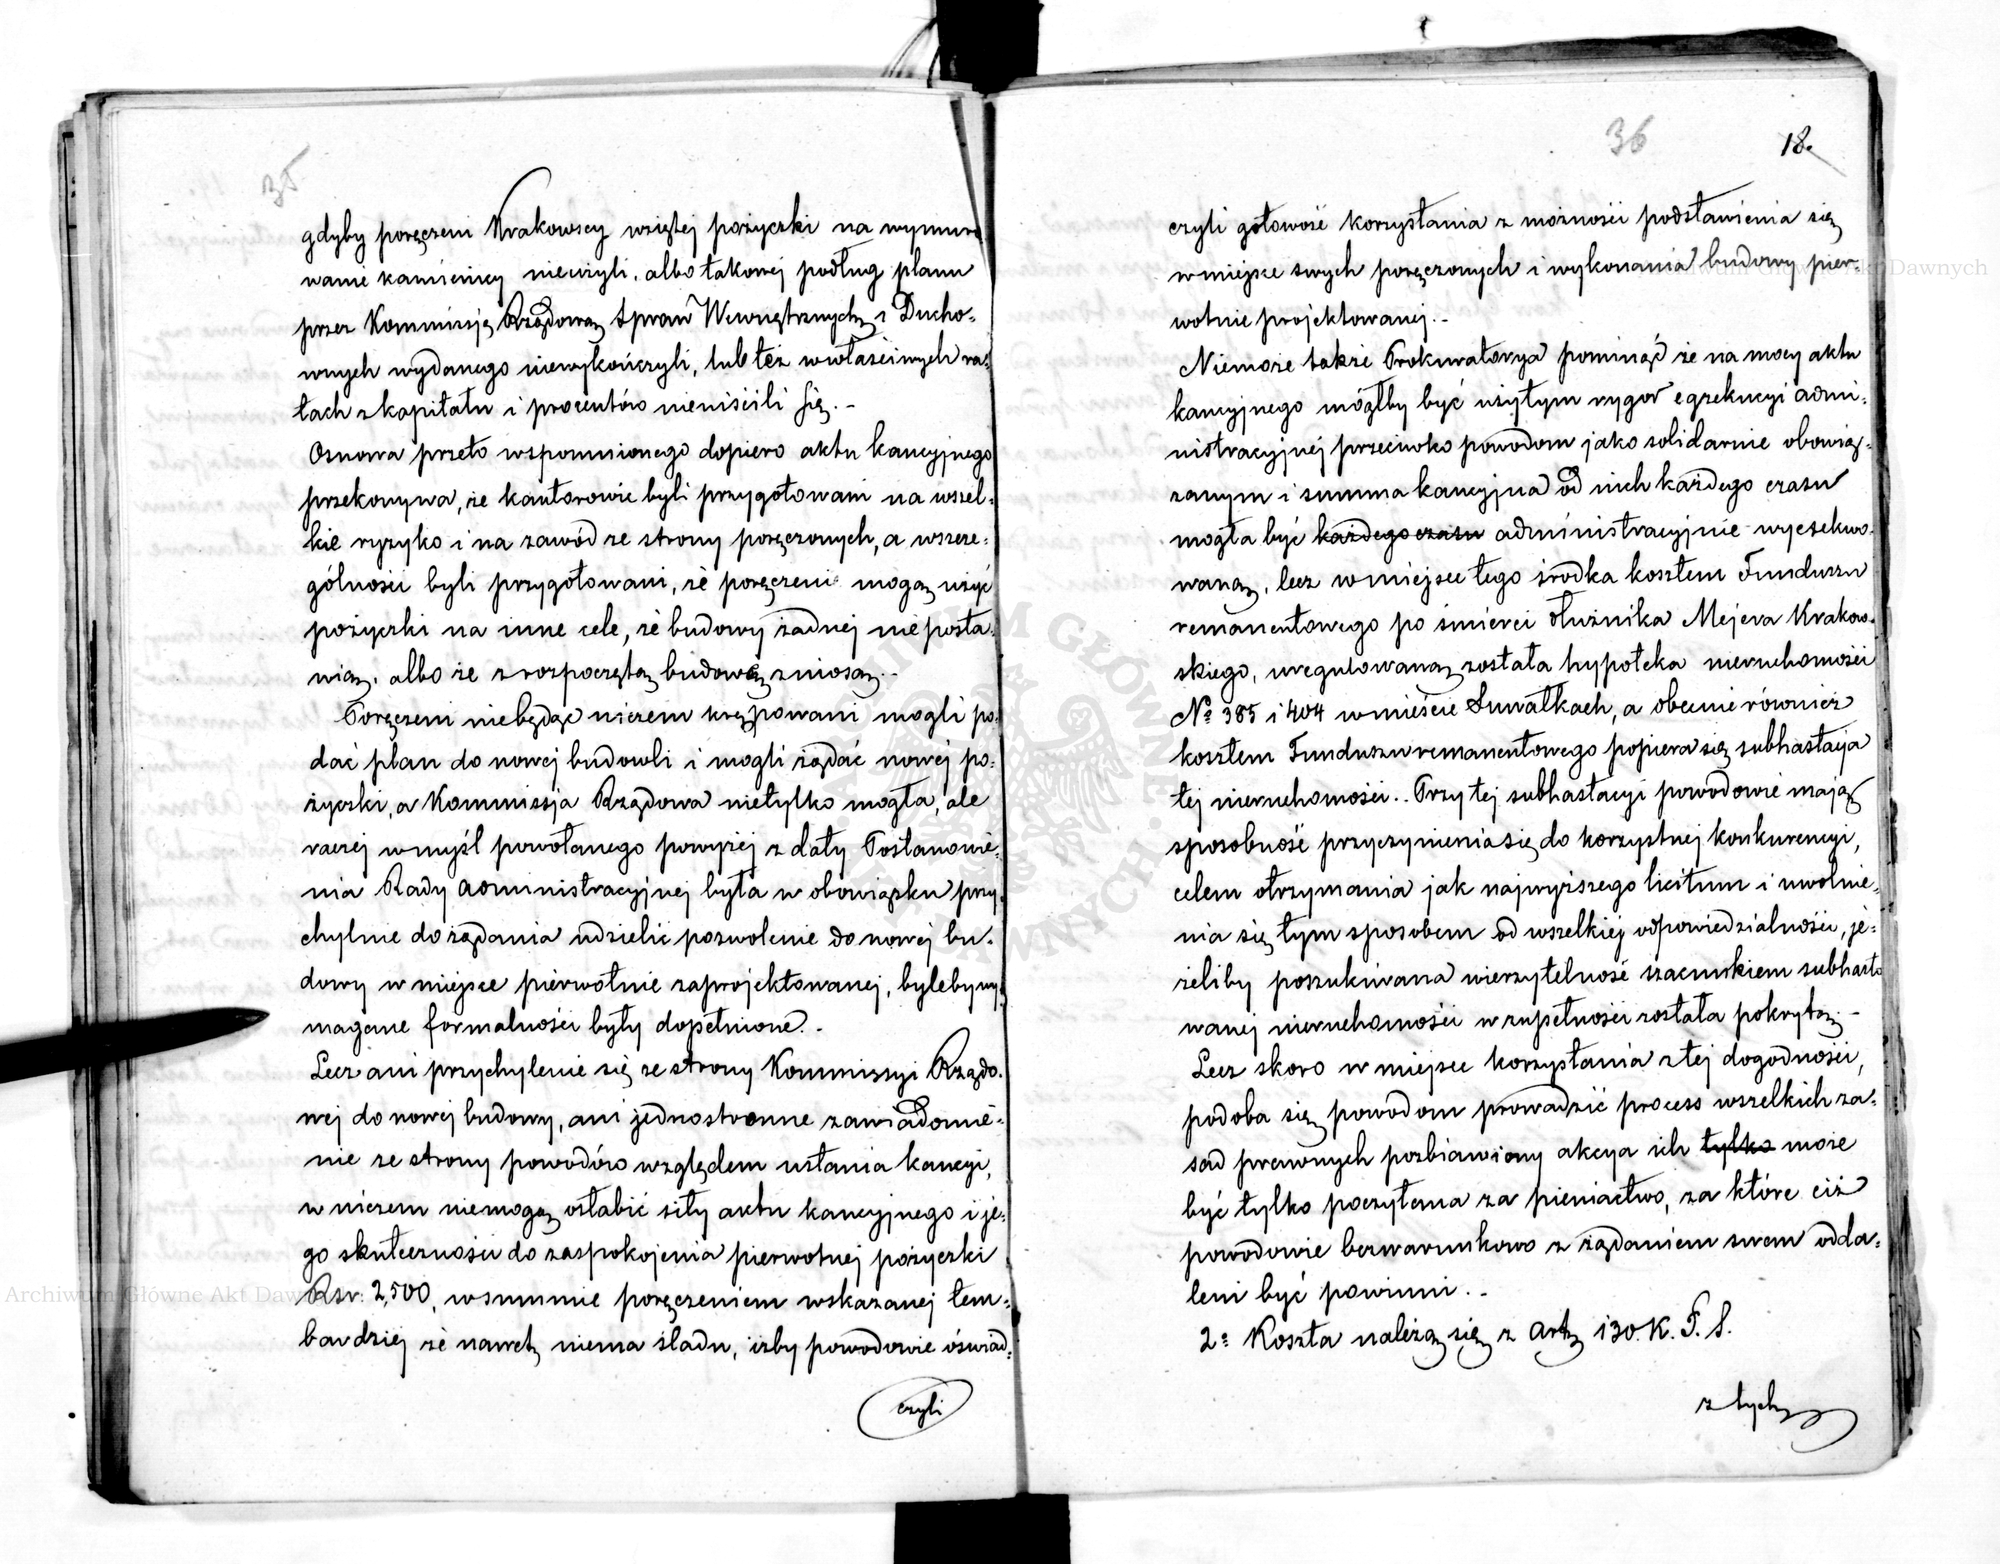 35
gdyby poręczeni Krakowscy wziętej pożyczki na wymuro
wanie kamienicy nieużyli, albo takowej podług planu
przez Kommissję Rządową Spraw Wewnętrznych i Ducho-
wnych wydanego niewykończyli, lub też wwłaściwych ra-
tach z kapitału i procentów nieuiścili się. -
Osnowa przeto wspomnionego dopiero aktu kaucyjnego
przekonywa, że kautorowie byli przygotowani na wszel-
kie ryzyko i na zawód ze strony poręczonych, a wszcze-
gólności byli przygotowani, że poręczeni mogą użyć
pożyczki na inne cele, że budowy żadnej nie posta-
wią, albo że z rozpoczętą budową zniosą. -
Poręczeni niebędąc niczem krępowani mogli po-
dać plan do nowej budowli i mogli żądać nowej po-
życzki, a Kommissja Rządowa nietylko mogła, ale
raczej wmyśl powołanego powyżej z daty Postanowie-
nia Rady Administracyjnej była w obowiązku przy-
chylnie do żądania udzielić pozwolenie do nowej bu-
dowy w miejsce pierwotnie zaprojektowanej, byleby wy-
magane formalności były dopełnione. -
Lecz ani przychylenie się ze strony Kommissyi Rządo-
wej do nowej budowy, ani jednostronne zawiadomie-
nie ze strony powodów względem ustania kaucyi,
w niczem niemogą osłabić siły aktu kaucyjnego i je-
go skuteczności do zaspokojenia pierwotnej pożyczki
Rsr. 2,500, wsummie poręczeniem wskazanej tem-
bardziej że nawet niema śladu, iżby powodowie oświad-
czyli
36
18.
czyli gotowość korzystania z możności podstawienia się
wmiejsce swych poręczonych i wykonania budowy pier-
wotnie projektowanej. -
Niemoże także Prokuratorya pominąć że na mocy aktu
kaucyjnego mógłby być użytym rygor egzekucyi admi-
nistracyjnej przeciwko powodom jako solidarnie obowią-
zanym i summa kaucyjna od nich każdego czasu
mogła być każdego czasu administracyjnie wyeksekwo-
waną, lecz wmiejsce tego środka kosztem Funduszu
remanentowego po śmierci dłużnika Mejera Krakow-
skiego, uregulowaną została hypoteka nieruchomości
№ 385 i 404 wmieście Suwałkach, a obecnie również
kosztem Funduszu remanentowego popiera się subhastacja
tej nieruchomości.. Przy tej subhastacyi powodowie mają
sposobność przyczynienia się do korzystnej konkurencyi,
celem otrzymania jak najwyższego licitum i uwolnie-
nia się tym sposobem od wszelkiej odpowiedzialności, je-
żeliby poszukiwana wierzytelność szacunkiem subhasto
wanej nieruchomości w zupełności została pokrytą. -
Lecz skoro w miejsce korzystania z tej dogodności,
podoba się powodom prowadzić process wszelkich za-
sad prawnych pozbiawiony akcya ich tylko może
być tylko poczytana za pieniactwo, za które ciż
powodowie bezwarunkowo z żądaniem swem odda-
leni być powinni. -
2= Koszta należą się z art 130. K. P. S.
z tych
Archiwum Główne Akt Dawnych
Archiwum Główne Akt Dawnych
ARCHIWUM GŁÓWNE AKT DAWNYCH